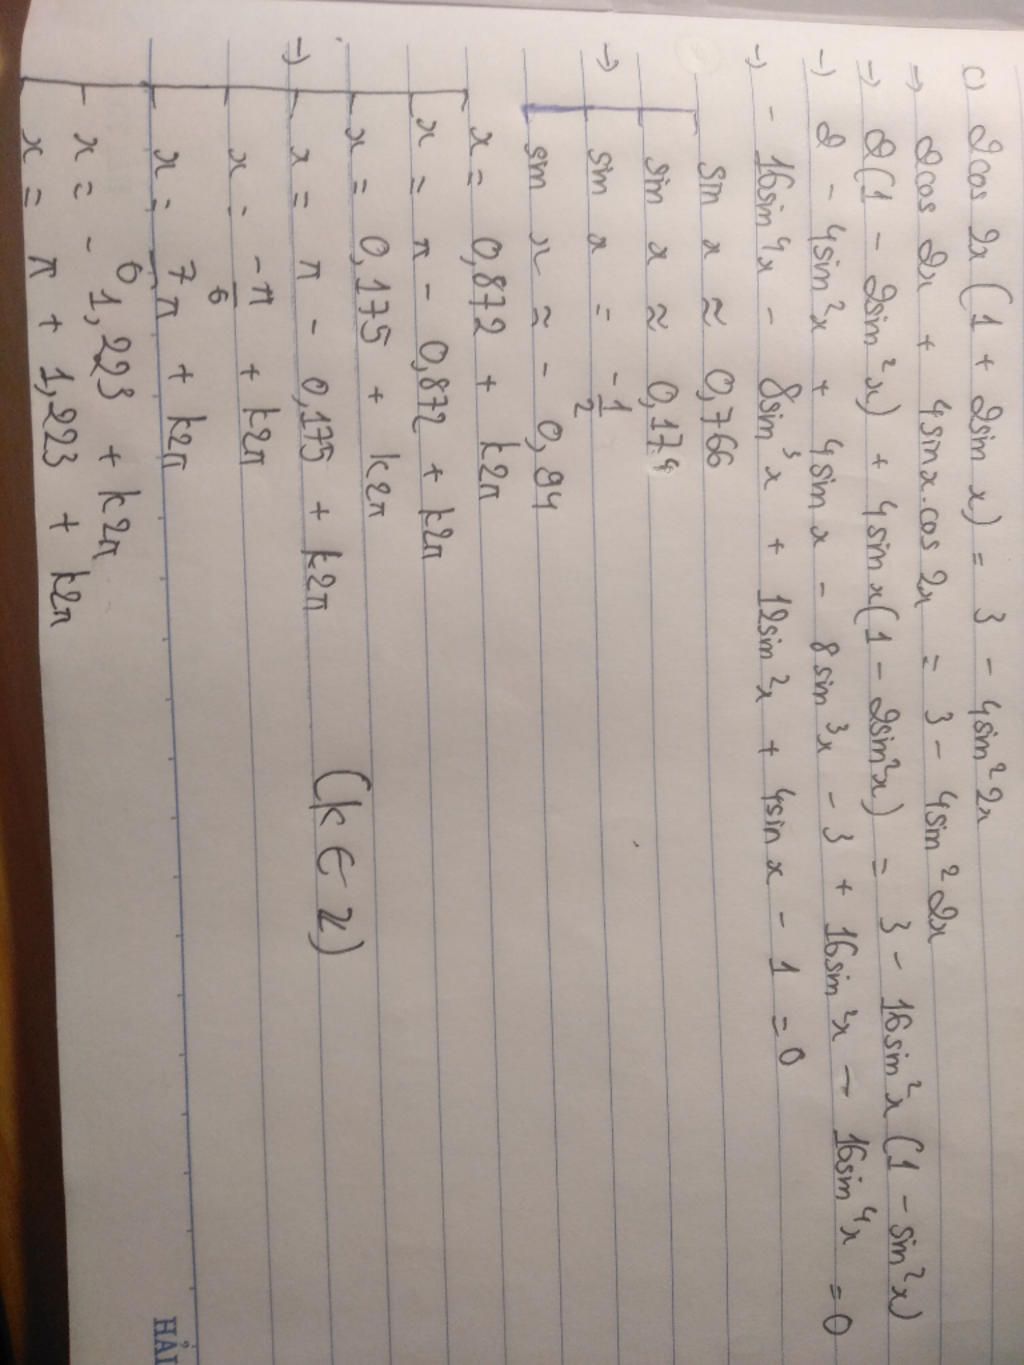 c) 2cos 2x (1 + 2sin x) = 3 - 4sin² 2x
=> 2cos 2x + 4sinx.cos 2x = 3 - 4sin² 2x
=> 2(1 - 2sin²x) + 4sin x(1 - 2sin²x) = 3 - 16sin²x(1 - sin²x)
=> 2 - 4sin²x + 4sin x - 8sin³x - 3 + 16sin²x - 16sin⁴x = 0
=> - 16sin⁴x - 8sin³x + 12sin²x + 4sin x - 1 = 0
sin x ≈ 0,766
sin x ≈ 0,174
=> sin x = -1/2
sin x ≈ - 0,94
x = 0,872 + k2π
x = π - 0,872 + k2π
x = 0,175 + k2π
=> x = π - 0,175 + k2π (k ∈ Z)
x = -π/6 + k2π
x = 7π/6 + k2π
x = - 1,223 + k2π
x = π + 1,223 + k2π
HẢI